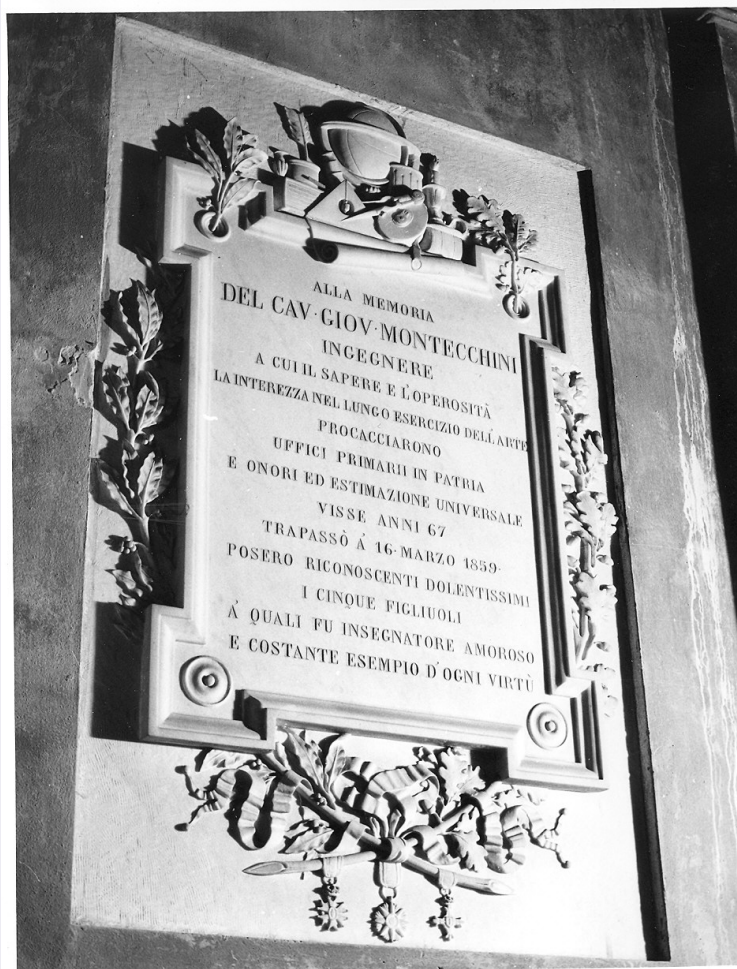 ALLA MEMORIA
DEL CAV· GIOV· MONTECCHINI
INGEGNERE
A CUI IL SAPERE E L'OPEROSITÀ
LA INTEREZZA NEL LUNGO ESERCIZIO DELL'ARTE
PROCACCIARONO
UFFICI PRIMARII IN PATRIA
E ONORI ED ESTIMAZIONE UNIVERSALE
VISSE ANNI 67
TRAPASSÒ A' 16· MARZO 1859·
POSERO RICONOSCENTI DOLENTISSIMI
I CINQUE FIGLIUOLI
A' QUALI FU INSEGNATORE AMOROSO
E COSTANTE ESEMPIO D'OGNI VIRTÙ